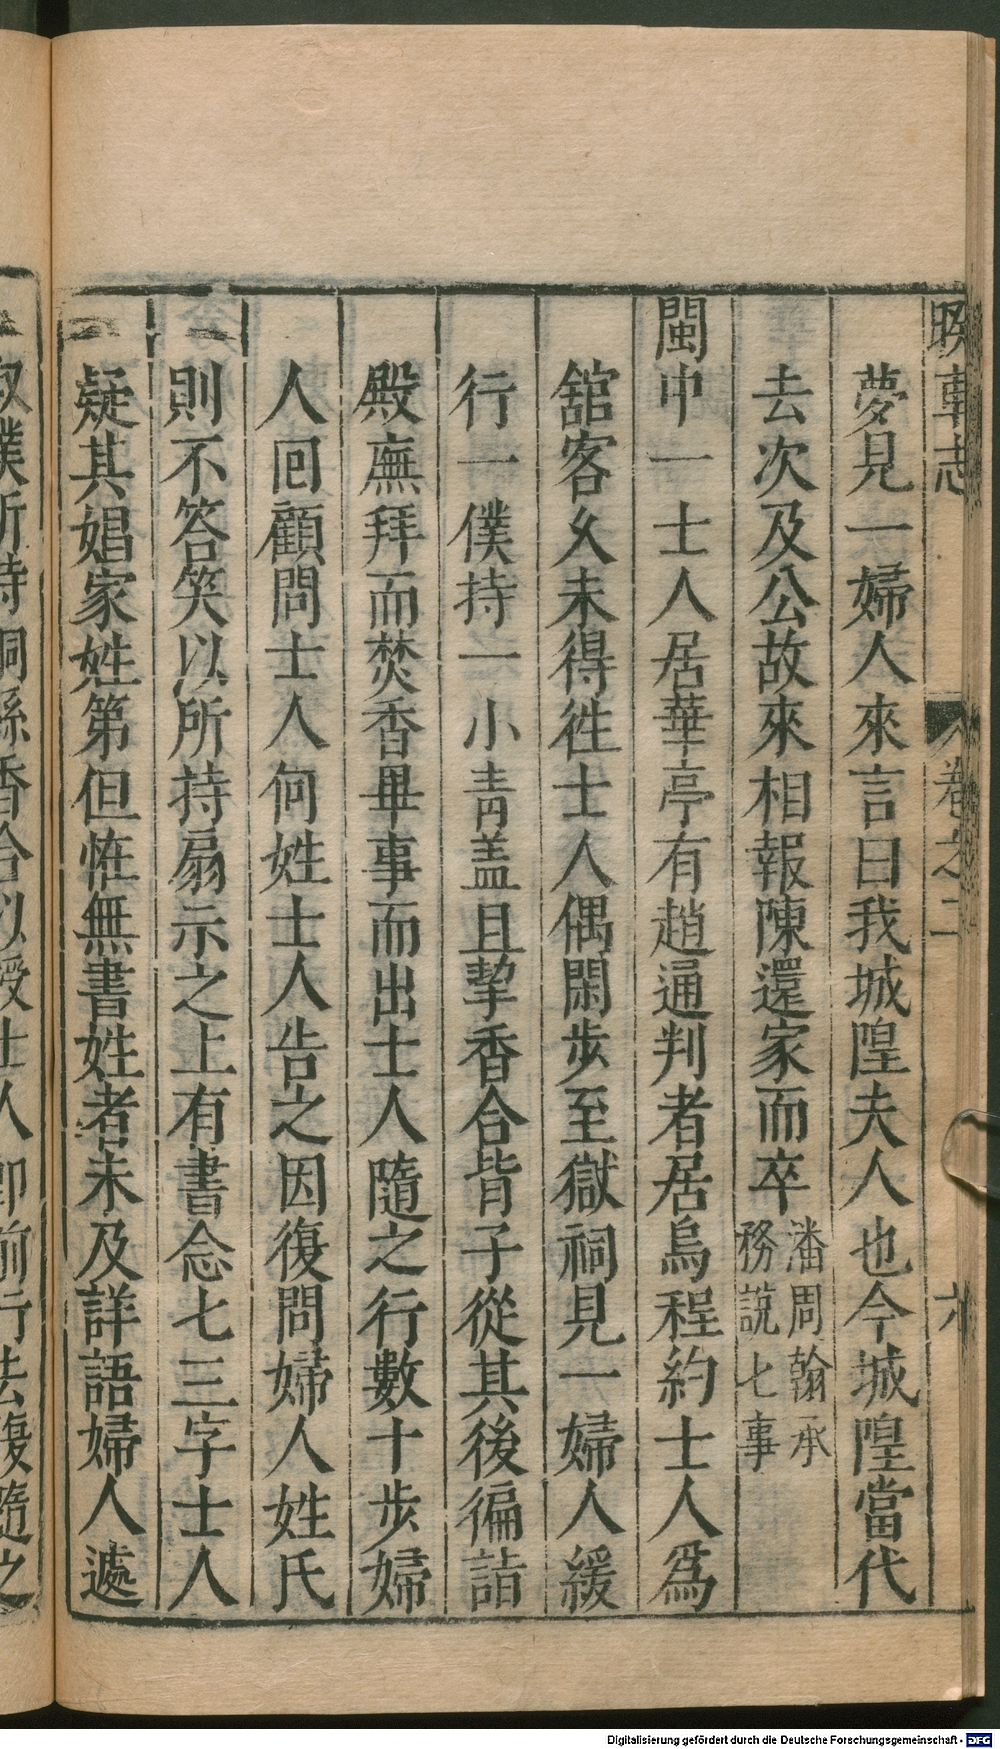 睽車志 卷之二 六
夢見一婦人來言曰我城隍夫人也今城隍當代
去次及公故來相報陳還家而卒潘周翰承務說七事
閩中一士人居華亭有趙通判者居烏程約士人爲
舘客久未得徃士人偶閑步至嶽祠見一婦人緩
行一僕持一小青盖且挈香合背子從其後徧詣
殿廡拜而焚香畢事而出士人隨之行數十步婦
人囘顧問士人何姓士人告之因復問婦人姓氏
則不答笑以所持扇示之上有書念七三字士人
疑其娼家姓第但恠無書姓者未及詳語婦人遽
僕所持 香合以授士人卽前行去復隨之
Digitalisierung gefördert durch die Deutsche Forschungsgemeinschaft - DFG